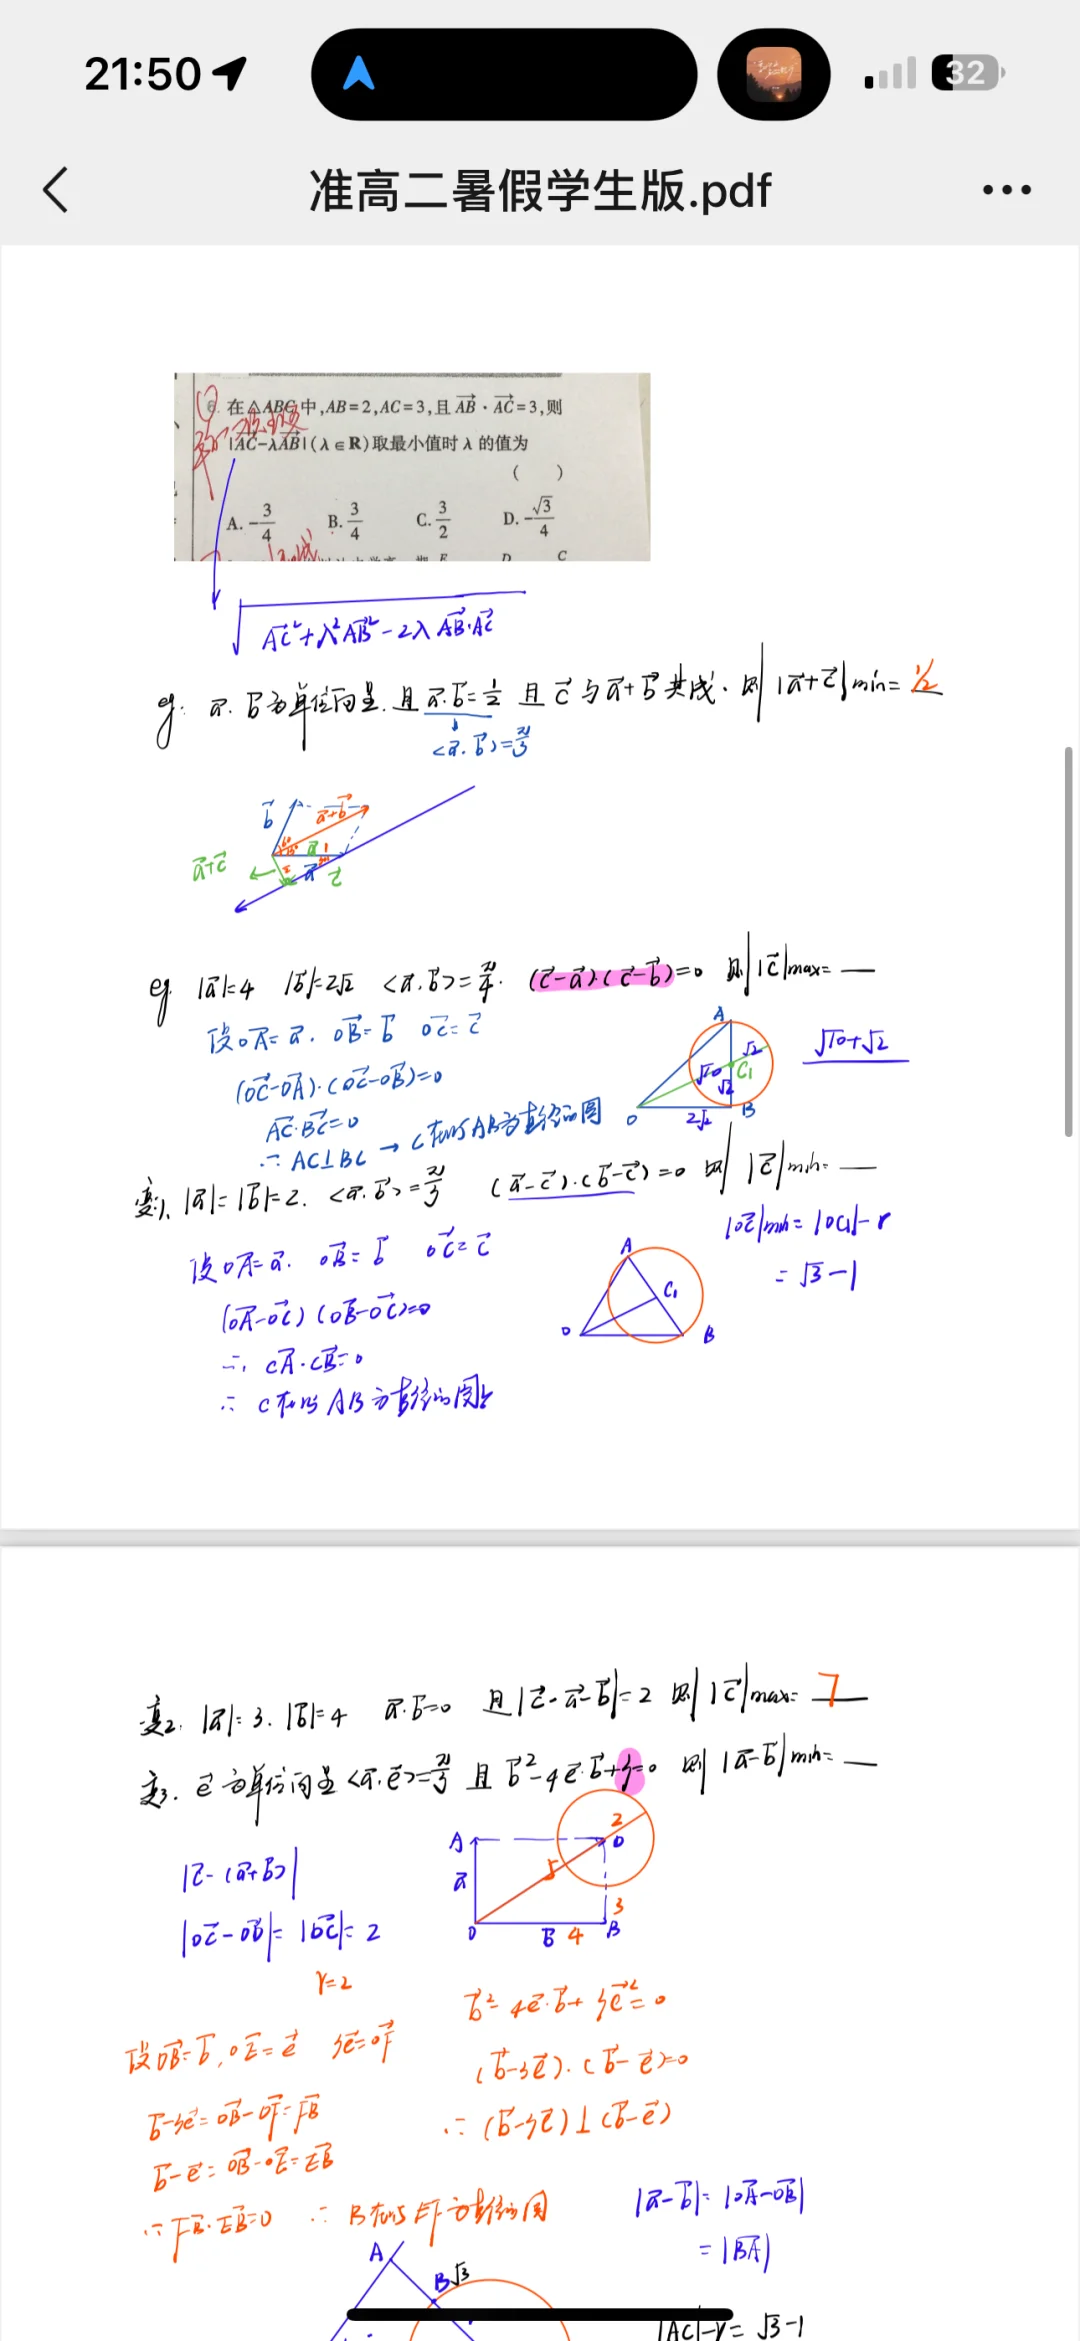 21:50
32
准高二暑假学生版.pdf
6. 在△ABC中,AB=2,AC=3,且 AB · AC=3,则
|AC-λAB|(λ∈R)取最小值时 λ 的值为
( )
A. -3/4 B. 3/4 C. 3/2 D. -√3/4
√(AC²+λ²AB²-2λAB·AC)
eg: a. b为单位向量. 且 a·b=1/2 且 c 与 a+b 共线. 则 |a+c|min= 1/2
<a.b>=π/3
b a+b
a+c a 1 c
eg. |a|=4 |b|=2√2 <a.b>=π/4. (c-a)·(c-b)=0 则 |c|max= __
设OA=a. OB=b OC=c
√10+√2
(OC-OA)·(OC-OB)=0
AC·BC=0
∴ AC⊥BC → C在以AB为直径的圆
A √2 √10 C₁ √2 O 2√2 B
变1. |a|=|b|=2. <a.b>=π/3 (a-c)·(b-c)=0 则 |c|min= __
设OA=a. OB=b OC=c
|OC|min=|OC₁|-r
=√3-1
(OA-OC)(OB-OC)=0
∴ CA·CB=0
∴ C在以AB为直径的圆上
A C₁ O B
变2. |a|=3. |b|=4 a·b=0 且|c-a-b|=2 则 |c|max= 7
变3. e为单位向量<a.e>=π/3 且 b²-4e·b+3=0 则 |a-b|min= __
|c-(a+b)|
|OC-OD|=|DC|=2
r=2
A 2 D a 5 3 O b 4 B
b²-4e·b+3e²=0
(b-3e)·(b-e)=0
∴ (b-3e)⊥(b-e)
设OB=b, OE=e 3e=OF
b-3e=OB-OF=FB
b-e=OB-OE=EB
∴FB·EB=0 ∴ B在以EF为直径的圆
|a-b|=|OA-OB|
=|BA|
A
B √3
|AC|-r=√3-1